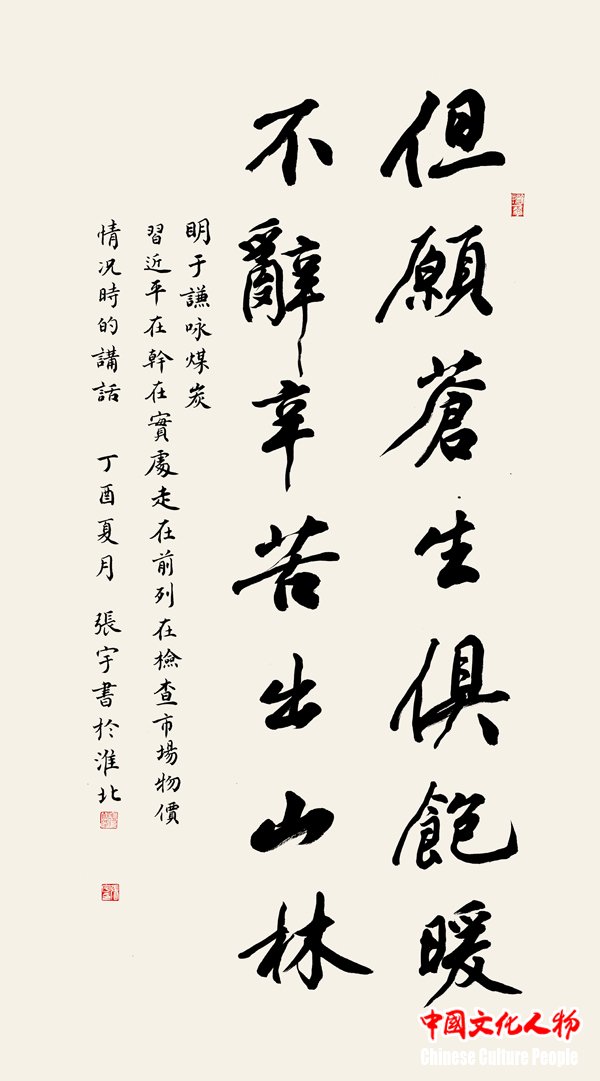 但願蒼生俱飽暖
不辭辛苦出山林
明于謙咏煤炭
習近平在幹在實處走在前列在檢查市場物價
情况時的講話 丁酉夏月 張宇書於淮北
中國文化人物
Chinese Culture People